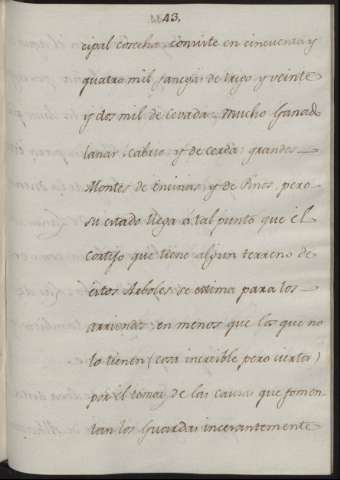 43.
cipal cosecha, consiste en cincuenta y
quatro mil fanegas de trigo y veinte
y dos mil de Cevada, mucho Ganado
lanar, cabrio y de cerda: grandes
Montes de Encinas, y de Pinos, pero
su estado llega á tal punto que el
cortijo que tiene algun terreno de
estos Arboles, se estima para los
arriendos, en menos que los que no
lo tienen (cosa increible pero cierta)
por el temor de las causas que fomen
tan los Guardas incesantemente